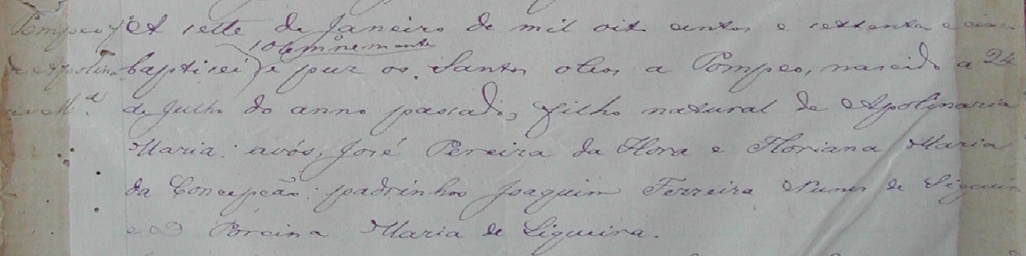 Pompeo f. A sette de Janeiro de mil oit centos e settenta e cinco
solemnemente
de Apolina baptisei e puz os Santos oleos a Pompeo, nascido a 24
de Julho do anno passado, filho natural de Apolinaria
Maria: avós, José Pereira da Hora e Floriana Maria
da Concepção: padrinhos Joaquim Ferreira Nunes de Siqueira
e D Porcina Maria de Siqueira.